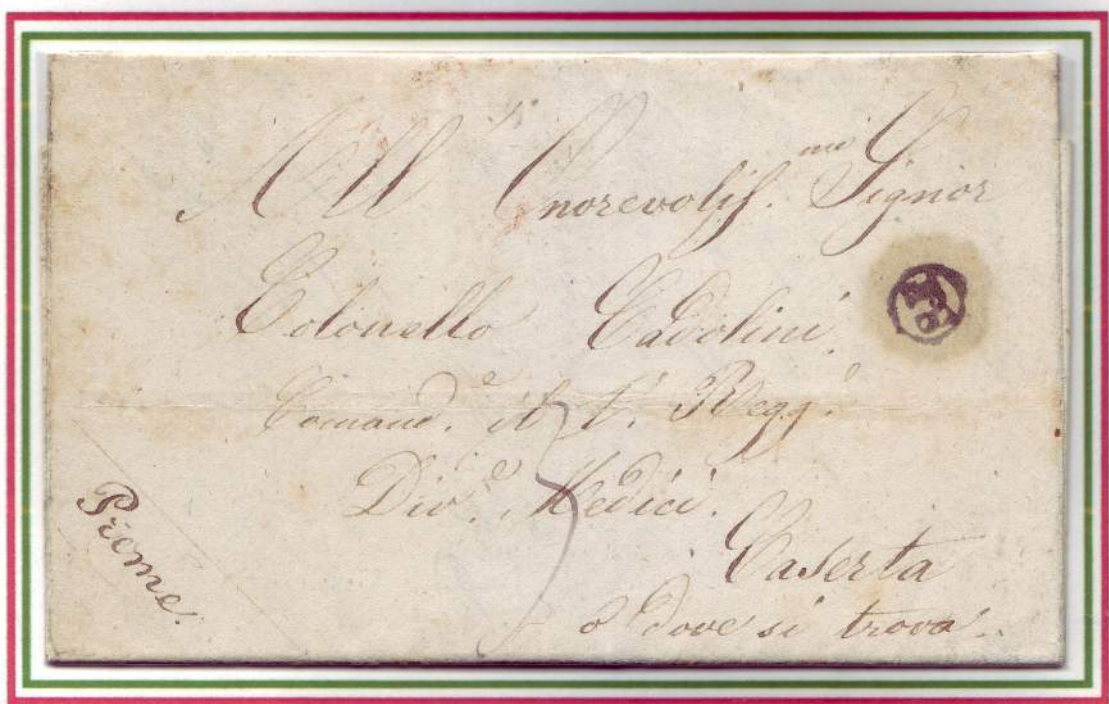 All' Onorevoliss.mo Signor
Colonello Cadolini
Comand.e il 1.° Regg.°
Div.e Medici.
Caserta
o dove si trova.
Preme.